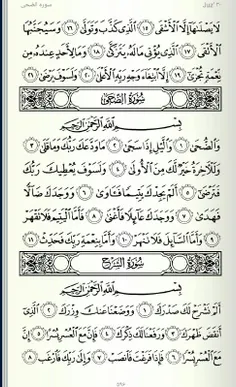 سورة الضحى
لَا يَصْلَاهَا إِلَّا الْأَشْقَى ١٥ الَّذِي كَذَّبَ وَتَوَلَّى ١٦ وَسَيُجَنَّبُهَا
الْأَتْقَى ١٧ الَّذِي يُؤْتِي مَالَهُ يَتَزَكَّى ١٨ وَمَا لِأَحَدٍ عِندَهُ مِن
نِّعْمَةٍ تُجْزَى ١٩ إِلَّا ابْتِغَاءَ وَجْهِ رَبِّهِ الْأَعْلَى ٢٠ وَلَسَوْفَ يَرْضَى ٢١
سُورَةُ الضُّحَى
بِسْمِ اللَّهِ الرَّحْمَٰنِ الرَّحِيمِ
وَالضُّحَى ١ وَاللَّيْلِ إِذَا سَجَى ٢ مَا وَدَّعَكَ رَبُّكَ وَمَا قَلَى ٣
وَلَلْآخِرَةُ خَيْرٌ لَّكَ مِنَ الْأُولَى ٤ وَلَسَوْفَ يُعْطِيكَ رَبُّكَ
فَتَرْضَى ٥ أَلَمْ يَجِدْكَ يَتِيمًا فَآوَى ٦ وَوَجَدَكَ ضَالًّا
فَهَدَى ٧ وَوَجَدَكَ عَائِلًا فَأَغْنَى ٨ فَأَمَّا الْيَتِيمَ فَلَا تَقْهَرْ
٩ وَأَمَّا السَّائِلَ فَلَا تَنْهَرْ ١٠ وَأَمَّا بِنِعْمَةِ رَبِّكَ فَحَدِّثْ ١١
سُورَةُ الشَّرْحِ
بِسْمِ اللَّهِ الرَّحْمَٰنِ الرَّحِيمِ
أَلَمْ نَشْرَحْ لَكَ صَدْرَكَ ١ وَوَضَعْنَا عَنكَ وِزْرَكَ ٢ الَّذِي
أَنقَضَ ظَهْرَكَ ٣ وَرَفَعْنَا لَكَ ذِكْرَكَ ٤ فَإِنَّ مَعَ الْعُسْرِ يُسْرًا ٥ إِنَّ
مَعَ الْعُسْرِ يُسْرًا ٦ فَإِذَا فَرَغْتَ فَانصَبْ ٧ وَإِلَى رَبِّكَ فَارْغَب ٨
٥٩٦